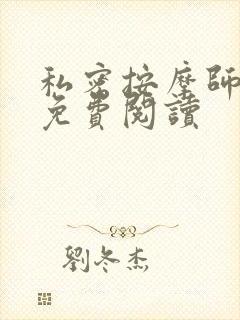 私密按摩師
免費閱讀
劉冬杰